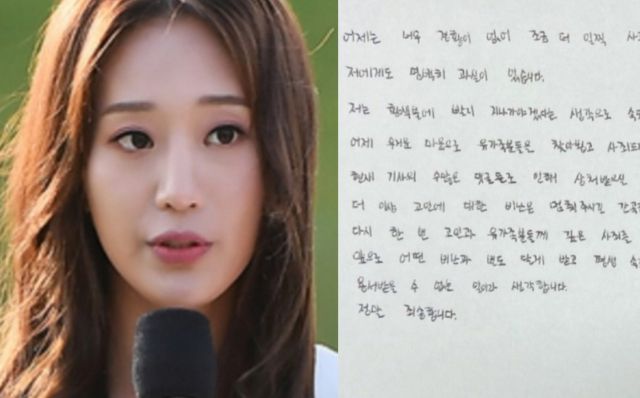 어제는 너무 경황이 없어 조금 더 일찍 사
저에게도 명백히 과실이 있습니다.
저는 황색불에 빨리 지나가야겠다는 생각으로 속도
어제 무거운 마음으로 유가족분들을 찾아뵙고 사죄드
현재 기사의 수많은 댓글들로 인해 상처받으신
더 이상 고인에 대한 비난은 멈춰주시길 간곡
다시 한 번 고인과 유가족분들께 깊은 사죄를
앞으로 어떤 비난과 벌도 달게 받고 평생 속
용서받을 수 없는 일이라 생각합니다.
정말 죄송합니다.